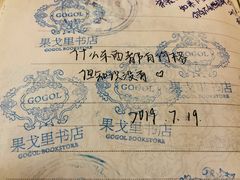 GOGOL
果戈里书店
GOGOL BOOKSTORE
什么东西都有价格
但知识没有
GOGOL
GOGOL
2019.7.19.
果戈里书店
GOGOL BOOKSTORE
果戈里书店
GOGOL BOOKSTORE